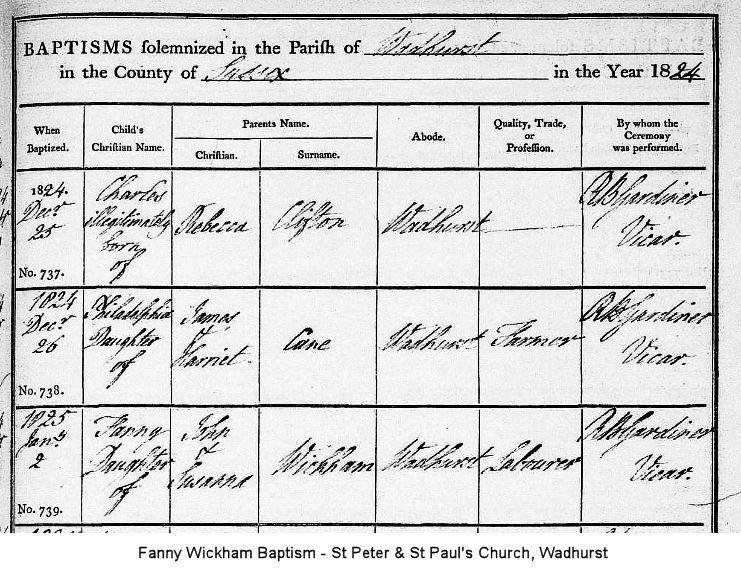 BAPTISMS solemnized in the Parish of Wadhurst
in the County of Sussex in the Year 1824
When Baptized.
Child's Christian Name.
Parents Name.
Christian.
Surname.
Abode.
Quality, Trade, or Profession.
By whom the Ceremony was performed.
1824.
Decr
25
No. 737.
Charles
illegitimately
born
of
Rebecca
Clifton
Wadhurst
RB Gardiner
Vicar.
1824
Decr
26
No. 738.
Philadelphia
Daughter
of
James
&
Harriet
Cane
Wadhurst
Farmer
RB Gardiner
Vicar.
1825
Jany
2
No. 739.
Fanny
Daughter
of
John
&
Susanna
Wickham
Wadhurst
Labourer
RB Gardiner
Vicar.
Fanny Wickham Baptism - St Peter & St Paul's Church, Wadhurst